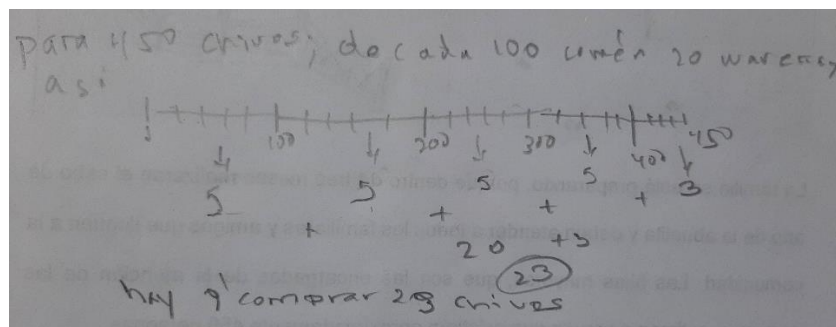 para 450 chivos; de cada 100 comen 20 warens,
así
100 200 300 400 450
5 5 5 5 3
+ + + +
20 +3
23
hay q comprar 23 chivos